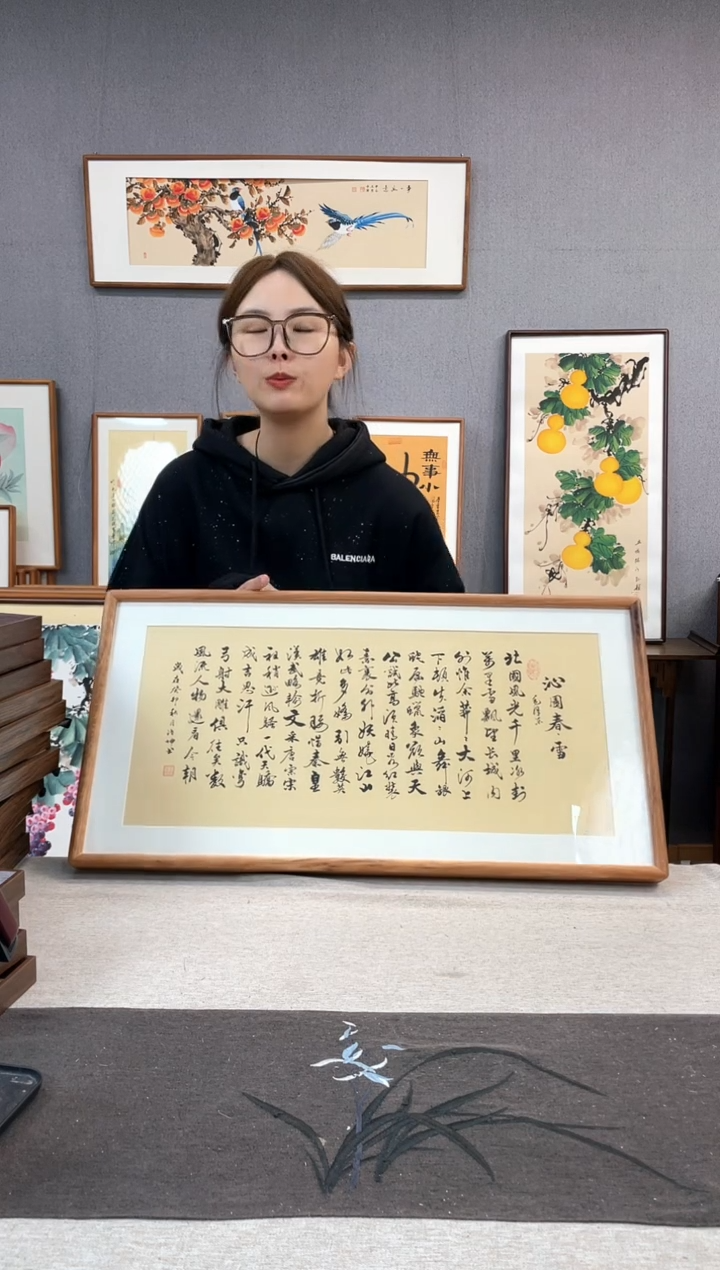 無事
小
BALENCIAGA
沁園春雪
毛泽东
北國風光千里冰封
萬里雪飄望长城内
外惟余莽〻大河上
下頓失滔〻山舞銀
蛇原馳蠟象欲與天
公試比高须晴日看红装
素裹分外妖娆江山
如此多嬌引无數英
雄竞折腰惜秦皇
漢武略输文采唐宗宋
祖稍逊风骚一代天驕
成吉思汗只識彎
弓射大雕俱往矣數
風流人物還看今朝
歲在癸卯秋月